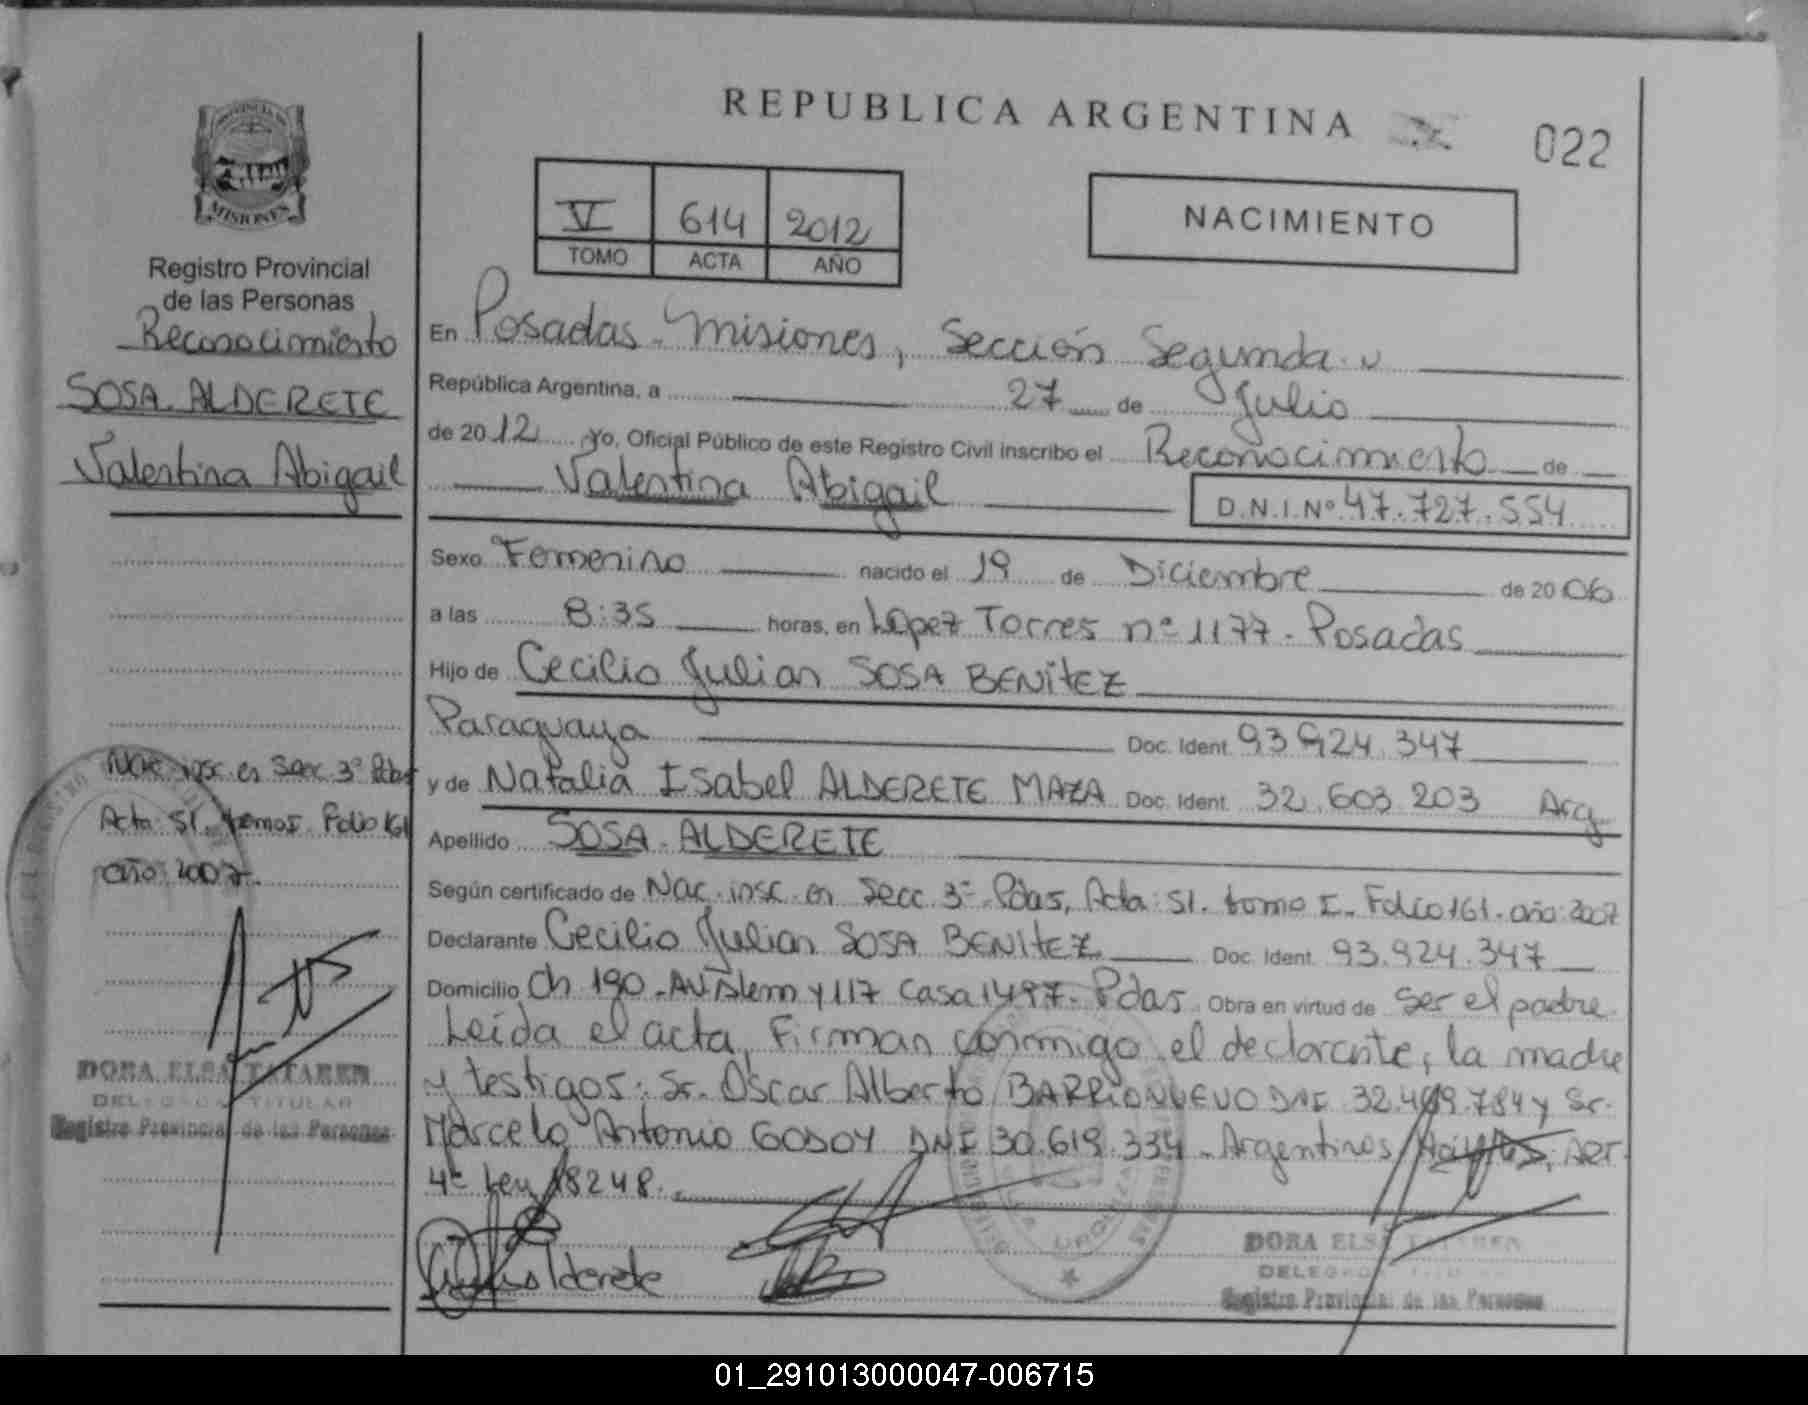 REPUBLICA ARGENTINA
022
PROVINCIA DE
MISIONES
Registro Provincial
de las Personas
Reconocimiento
SOSA ALDERETE
Valentina Abigail
V 614 2012
TOMO ACTA AÑO
NACIMIENTO
En Posadas - Misiones, Sección Segunda
República Argentina, a 27 de Julio
de 2012 Yo, Oficial Público de este Registro Civil inscribo el Reconocimiento de
Valentina Abigail D.N.I.Nº 47.727.554
Sexo Femenino nacido el 19 de Diciembre de 2006
a las 8:35 horas, en Lopez Torres nº 1177 - Posadas
Hijo de Cecilio Julian SOSA BENITEZ
Paraguaya Doc. Ident. 93.924.347
y de Natalia Isabel ALDERETE MAZA Doc. Ident. 32.603.203 Arg
Apellido SOSA ALDERETE
Según certificado de Nac. insc. en Secc. 3º Pdas, Acta: 51. tomo I. Folio 161. año: 2007
Declarante Cecilio Julian SOSA BENITEZ Doc. Ident. 93.924.347
Domicilio Ch 190 - Av Alem y 117 Casa 1497 - Pdas. Obra en virtud de ser el padre
Leída el acta, Firman conmigo el declarante, la madre
y testigos: Sr. Oscar Alberto BARRIONUEVO DNI 32.499.784 y Sr.
Marcelo Antonio GODOY DNI 30.619.334 - Argentinos ART.
4º Ley 18248.
Nac. insc. en Secc. 3º Pdas
Acta: 51. tomo I. Folio 161
año: 2007.
DORA ELSA TATAREN
DELEGADA TITULAR
Registro Provincial de las Personas
Alderete
URQUIZA
DORA ELSA TATAREN
DELEGADA TITULAR
Registro Provincial de las Personas
01_291013000047-006715